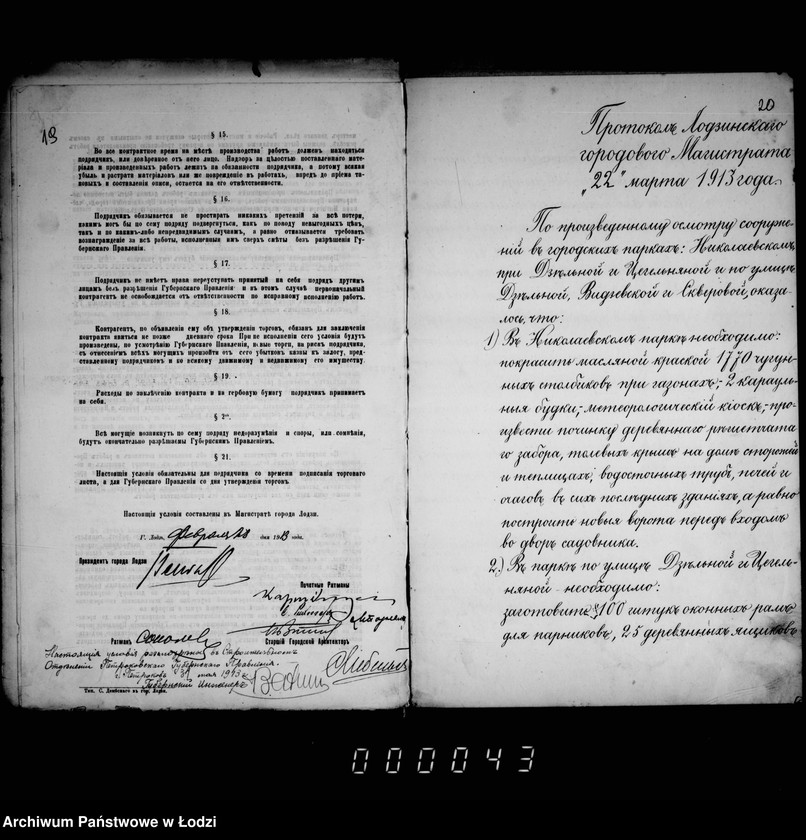 19
§ 15.
Во все контрактное время на мѣстѣ производства работ должен находиться
подрядчик, или довѣренное от него лицо. Надзор за цѣлостью поставленнаго мате-
ріала и произведенных работ лежит на обязанности подрядчика, а потому всякая
убыль и растрата матеріалов или же поврежденіе в работах, впредь до пріема та-
ковых и составленія описи, остается на его отвѣтственности.
§ 16.
Подрядчик обязывается не простирать никаких претензій за всѣ потери,
каким мог бы по сему подряду подвергнуться, как по поводу невыгодных цѣн,
так и по каким-либо непредвидимым случаям, а равно отказывается требовать
вознагражденіе за всѣ работы, исполненныя им сверх смѣты без разрѣшенія Гу-
бернскаго Правленія.
§ 17.
Подрядчик не имѣет права переуступать принятый на себя подряд другим
лицам без разрѣшенія Губернскаго Правленія и в этом случаѣ первоначальный
контрагент не освобождается от отвѣтственности по исправному исполненію работ.
§ 18.
Контрагент, по объявленіи ему об утвержденіи торгов, обязан для заключенія
контракта явиться не позже дневнаго срока При не исполненіи сего условія будут
произведены, по усмотрѣнію Губернскаго Правленія, новые торги, на риск подрядчика,
с отнесеніем всѣх могущих произойти от сего убытков казны к залогу, пред-
ставленному подрядчиком и ко всякому движимому и недвижимому его имуществу.
§ 19.
Расходы по заключенію контракта и на гербовую бумагу подрядчик принимает
на себя.
§ 20.
Всѣ могущія возникнуть по сему подряду недоразумѣнія и споры, или сомнѣнія,
будут окончательно разрѣшаемы Губернским Правленіем.
§ 21.
Настоящія условія обязательны для подрядчика со времени подписанія торговаго
листа, а для Губернскаго Правленія со дня утвержденія торгов.
Настоящія условія составлены в Магистратѣ города Лодзи.
Г. Лодзь, Февраля 28 дня 1913 года.
Президент города Лодзи
Почетные Ратманы
Ратман
Старшій Городской Архитектор
Настоящія условія разсмотрены въ Строительномъ
Отдѣленіи Петроковскаго Губернскаго Правленія.
г. Петроковъ 31 мая 1913 г.
Губернскій Инженеръ
Тип. С. Дембскаго в гор. Лодзи.
20
Протоколъ Лодзинскаго
городового Магистрата
„22" марта 1913 года.
По произведенному осмотру сооруже-
ній въ городскихъ паркахъ: Николаевскомъ,
при Дзѣльной и Цегельняной и по улицѣ
Дзѣльной, Видзевской и Скверовой, оказа-
лось, что:
1) Въ Николаевскомъ паркѣ необходимо:
покрасить масляной краской 1770 чугун-
ныхъ столбиковъ при газонахъ; 2 карауль-
ныя будки; метеорологическій кіоскъ; про-
извести починку деревяннаго рѣшетчата-
го забора, толевыхъ крышъ на домѣ сторожей
и теплицахъ; водосточныхъ трубъ, печей и
очаговъ въ сихъ послѣднихъ зданіяхъ, а равно
построить новыя ворота передъ входомъ
во дворъ садовника.
2.) Въ паркѣ по улицѣ Дзѣльной и Цегель-
няной - необходимо:
заготовить 100 штукъ оконныхъ рамъ
для парниковъ, 25 деревянныхъ ящиковъ
000043
Archiwum Państwowe w Łodzi